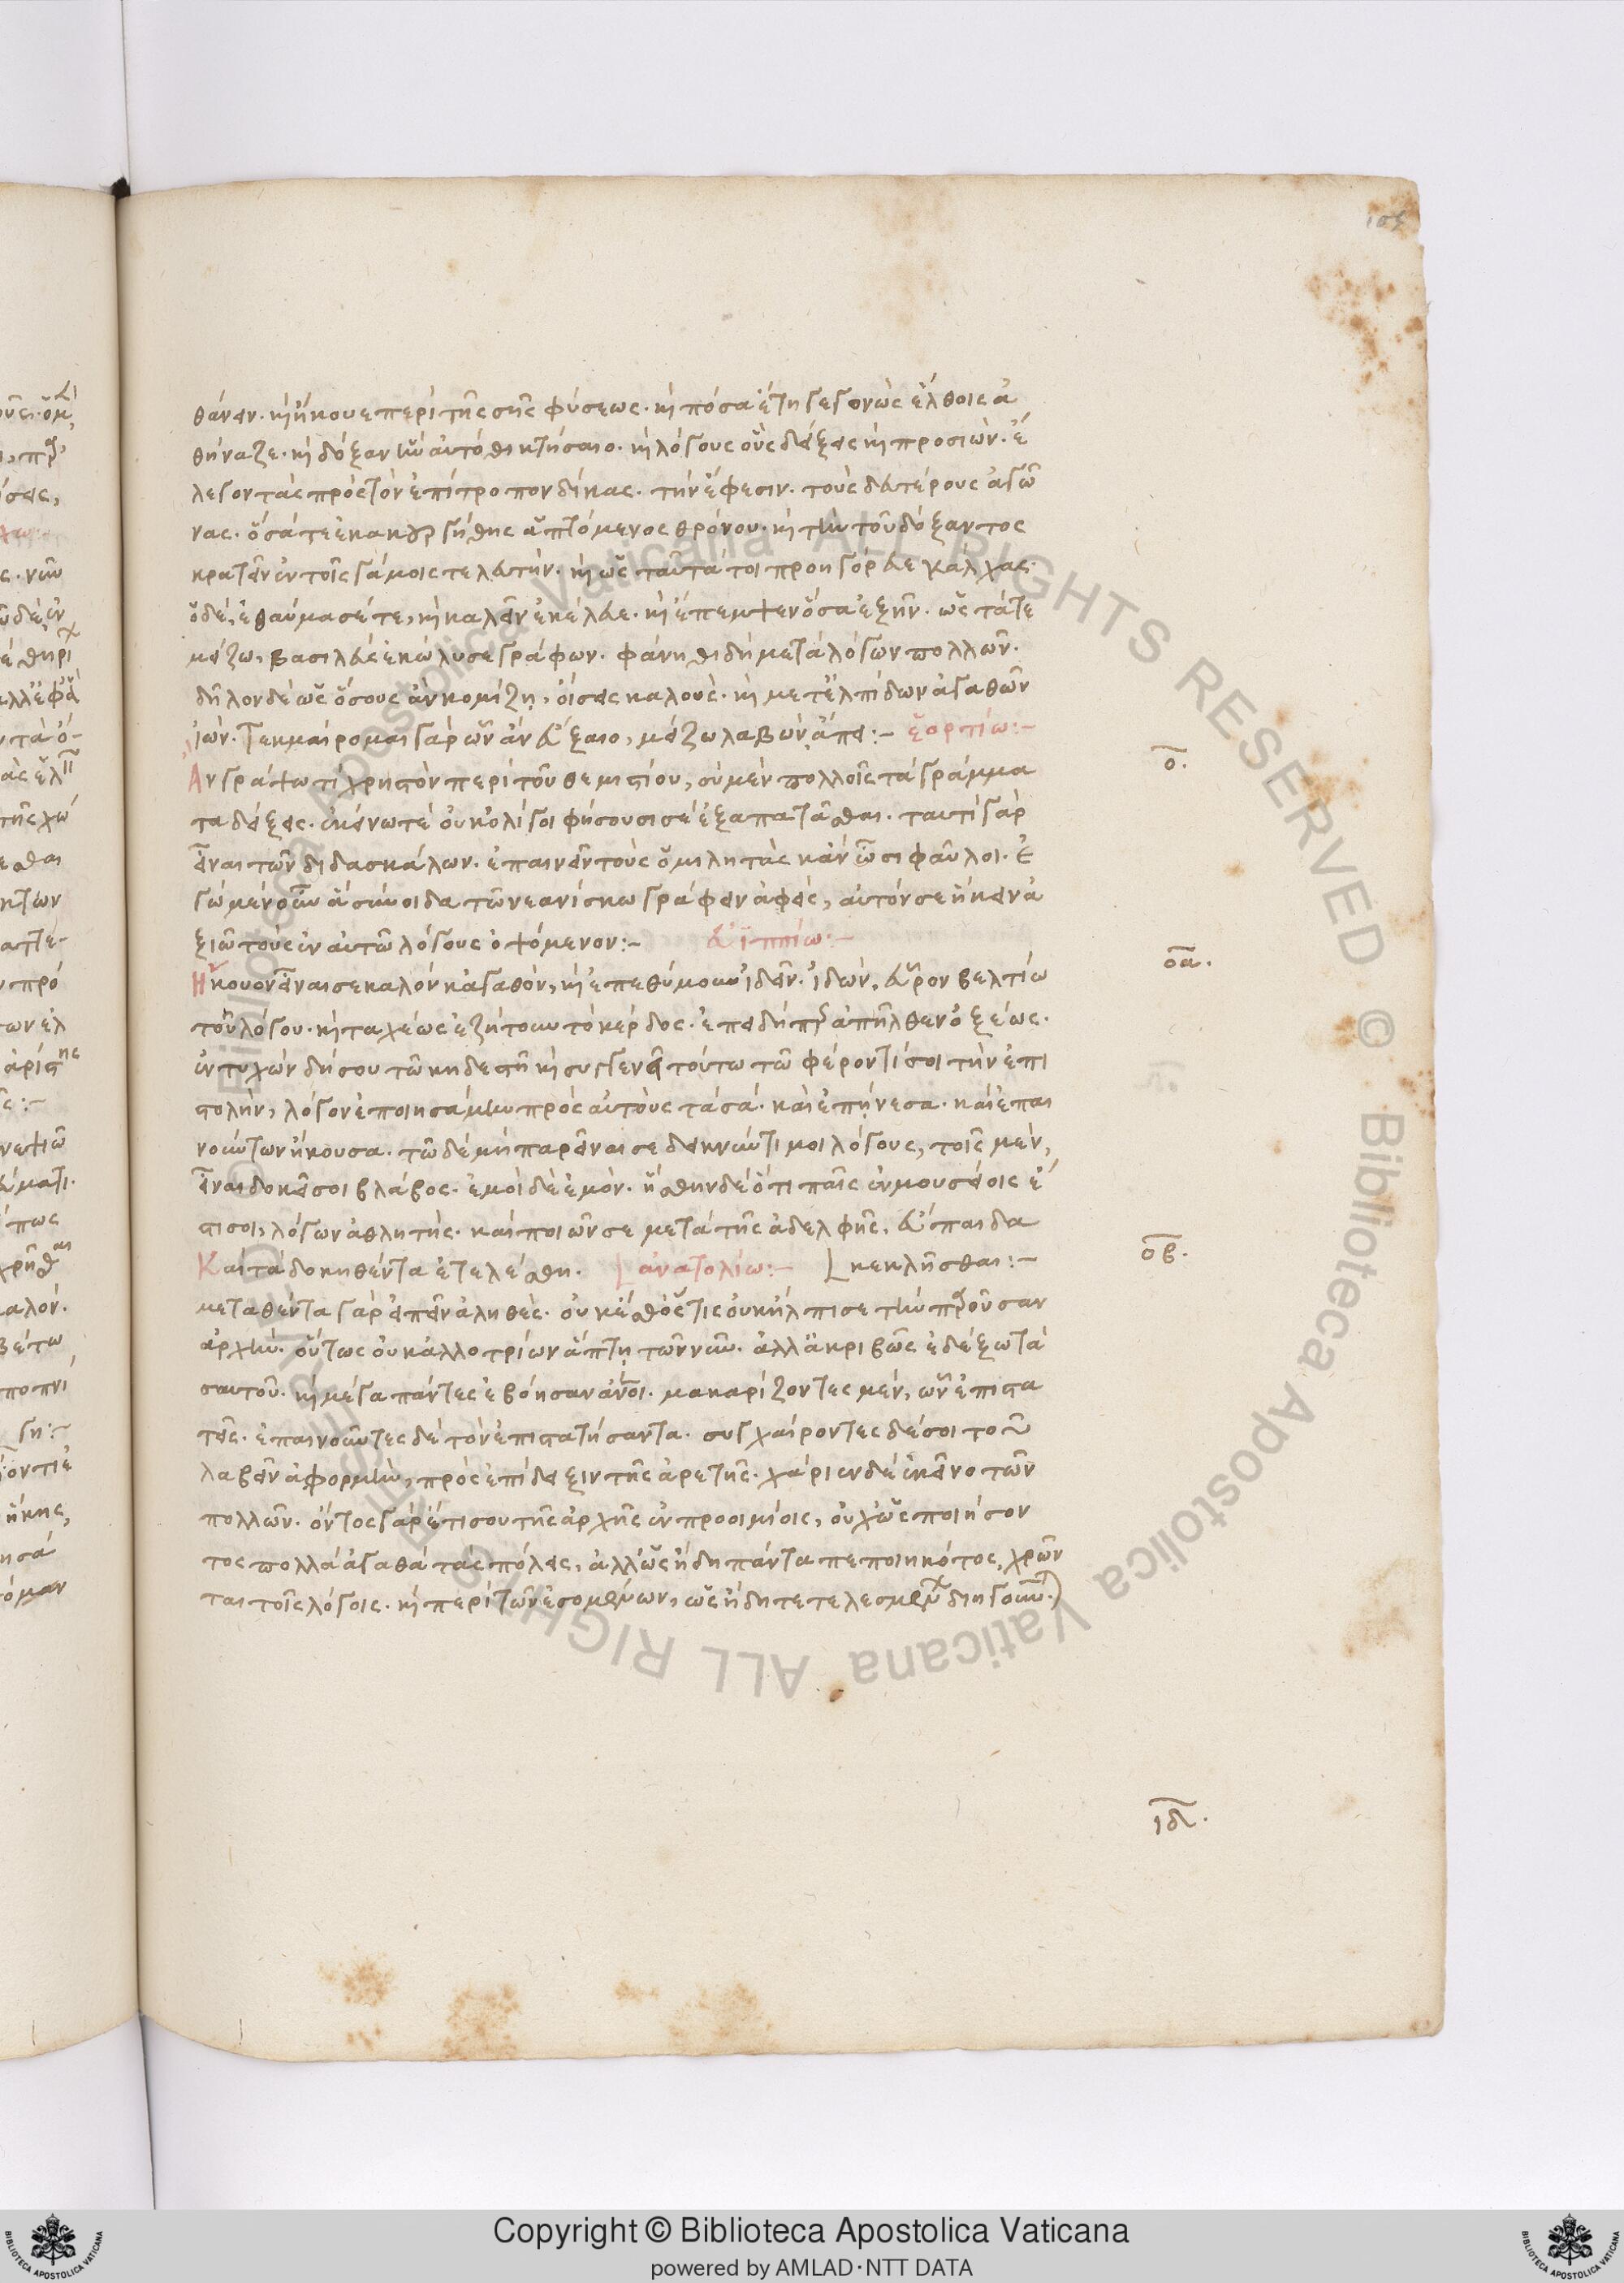 θάνειν. καὶ ἤκουε περὶ τῆς σῆς φύσεως. καὶ πόσα ἔτη γεγονὼς ἔλθοις ἀ
θήναζε. καὶ δόξαν ἣν αὐτόθι κτήσαιο. καὶ λόγους οὓς δείξεις καὶ προσιών. ἔ
λεγον τὰς πρὸς τὸν ἐπίτροπον δίκας. τὴν ἔφεσιν. τοὺς δευτέρους ἀγῶ
νας. ὅσά τε ἐκακουργήθης ἁπτόμενος θρόνου. καὶ τὴν τοῦ δόξαντος
κρατεῖν ἐν τοῖς γάμοις τελευτήν. καὶ ὡς ταῦτά τοι προηγόρευε κάλχας.
ὁ δὲ, ἐθαύμασέ τε, καὶ καλεῖν ἐκέλευε. καὶ ἔπεμψεν ὅσα ἐξῆν. ὡς τά γε
μείζω, βασιλεὺς ἐκώλυσε γράφων. φάνηθι δὴ μετὰ λόγων πολλῶν.
δῆλον δὲ ὡς ὅσους ἂν κομίζῃ, οἴσεις καλούς. καὶ μετ' ἐλπίδων ἀγαθῶν
ἰών. τεκμαίρομαι γὰρ ὧν ἂν εὔξαιο, μείζω λαβὼν ἄπει:– ἑορτίω:–
ο.
Ἂν γράψω τι χρηστὸν περὶ τοῦ θεμιστίου, σὺ μὲν πολλοῖς τὰ γράμμα
τα δείξεις. ἐκείνω τὲ οὐκ ὀλίγοι φήσουσί σε ἐξαπατᾶσθαι. ταυτὶ γὰρ
εἶναι τῶν διδασκάλων. ἐπαινεῖν τοὺς ὁμιλητὰς κἂν ὦσι φαῦλοι. ἐ
γὼ μὲν οὖν ἃ σύνοιδα τῶ νεανίσκω γράφειν ἀφεὶς, αὐτόν σε ἥκειν ἀ
ξιῶ τοὺς ἐν αὐτῶ λόγους ὀψόμενον:– εὐϊππίω:–
οα.
Ἤκουον εἶναί σε καλὸν κἀγαθόν, καὶ ἐπεθύμουν ἰδεῖν. ἰδὼν, εὗρον βελτίω
τοῦ λόγου. καὶ ταχέως ἐζήτουν τὸ κέρδος. ἐπειδήπερ ἀπῆλθεν ὀξέως.
ἐντυχὼν δή σου τῶ κηδεστῆ καὶ συγγενεῖ τούτω τῶ φέροντί σοι τὴν ἐπι
στολὴν, λόγον ἐποιησάμην πρὸς αὐτοὺς τὰ σά. καὶ ἐπήνεσα. καὶ ἐπαι
νούντων ἤκουσα. τῶ δὲ μὴ παρεῖναί σε δεικνύντι μοι λόγους, τοῖς μὲν,
εἶναι δοκεῖ σοι βλάβος. ἐμοὶ δὲ ἐμόν. ἥσθην δὲ ὅτι παῖς ἐν μουσείοις ἔ
στι σοι, λόγων ἀθλητής. καὶ ποιῶν σε μετὰ τῆς ἀδελφῆς, εὔπαιδα
κεκλῆσθαι:–
ἀνατολίω:–
οβ.
Καὶ τὰ δοκηθέντα ἐτελέσθη.
μεταθέντα γὰρ εἰπεῖν ἀληθές. οὐκ ἔσθ' ὅστις οὐκ ἤλπισε τὴν παροῦσαν
ἀρχήν. οὕτως οὐκ ἀλλοτρίων ἅπτῃ τῶν νῦν. ἀλλ' ἀκριβῶς ἐδέξω τὰ
σαυτοῦ. καὶ μέγα πάντες ἐβόησαν ἄνθρωποι. μακαρίζοντες μὲν, ὧν ἐπιστα
τεῖς. ἐπαινοῦντες δὲ τὸν ἐπιστατήσαντα. συγχαίροντες δέ σοι τοῦ
λαβεῖν ἀφορμὴν, πρὸς ἐπίδειξιν τῆς ἀρετῆς. χάριεν δὲ ἐκεῖνο τῶν
πολλῶν. ὄντος γὰρ ἔτι σου τῆς ἀρχῆς ἐν προοιμίοις, οὐχ ὡς ποιήσον
τος πολλὰ ἀγαθὰ τὰς πόλεις, ἀλλ' ὡς ἤδη πάντα πεποιηκότος, χρῶν
ται τοῖς λόγοις. καὶ περὶ τῶν ἐσομένων, ὡς ἤδη τετελεσμένων διηγοῦν
ιδ.
Copyright © Biblioteca Apostolica Vaticana
powered by AMLAD·NTT DATA